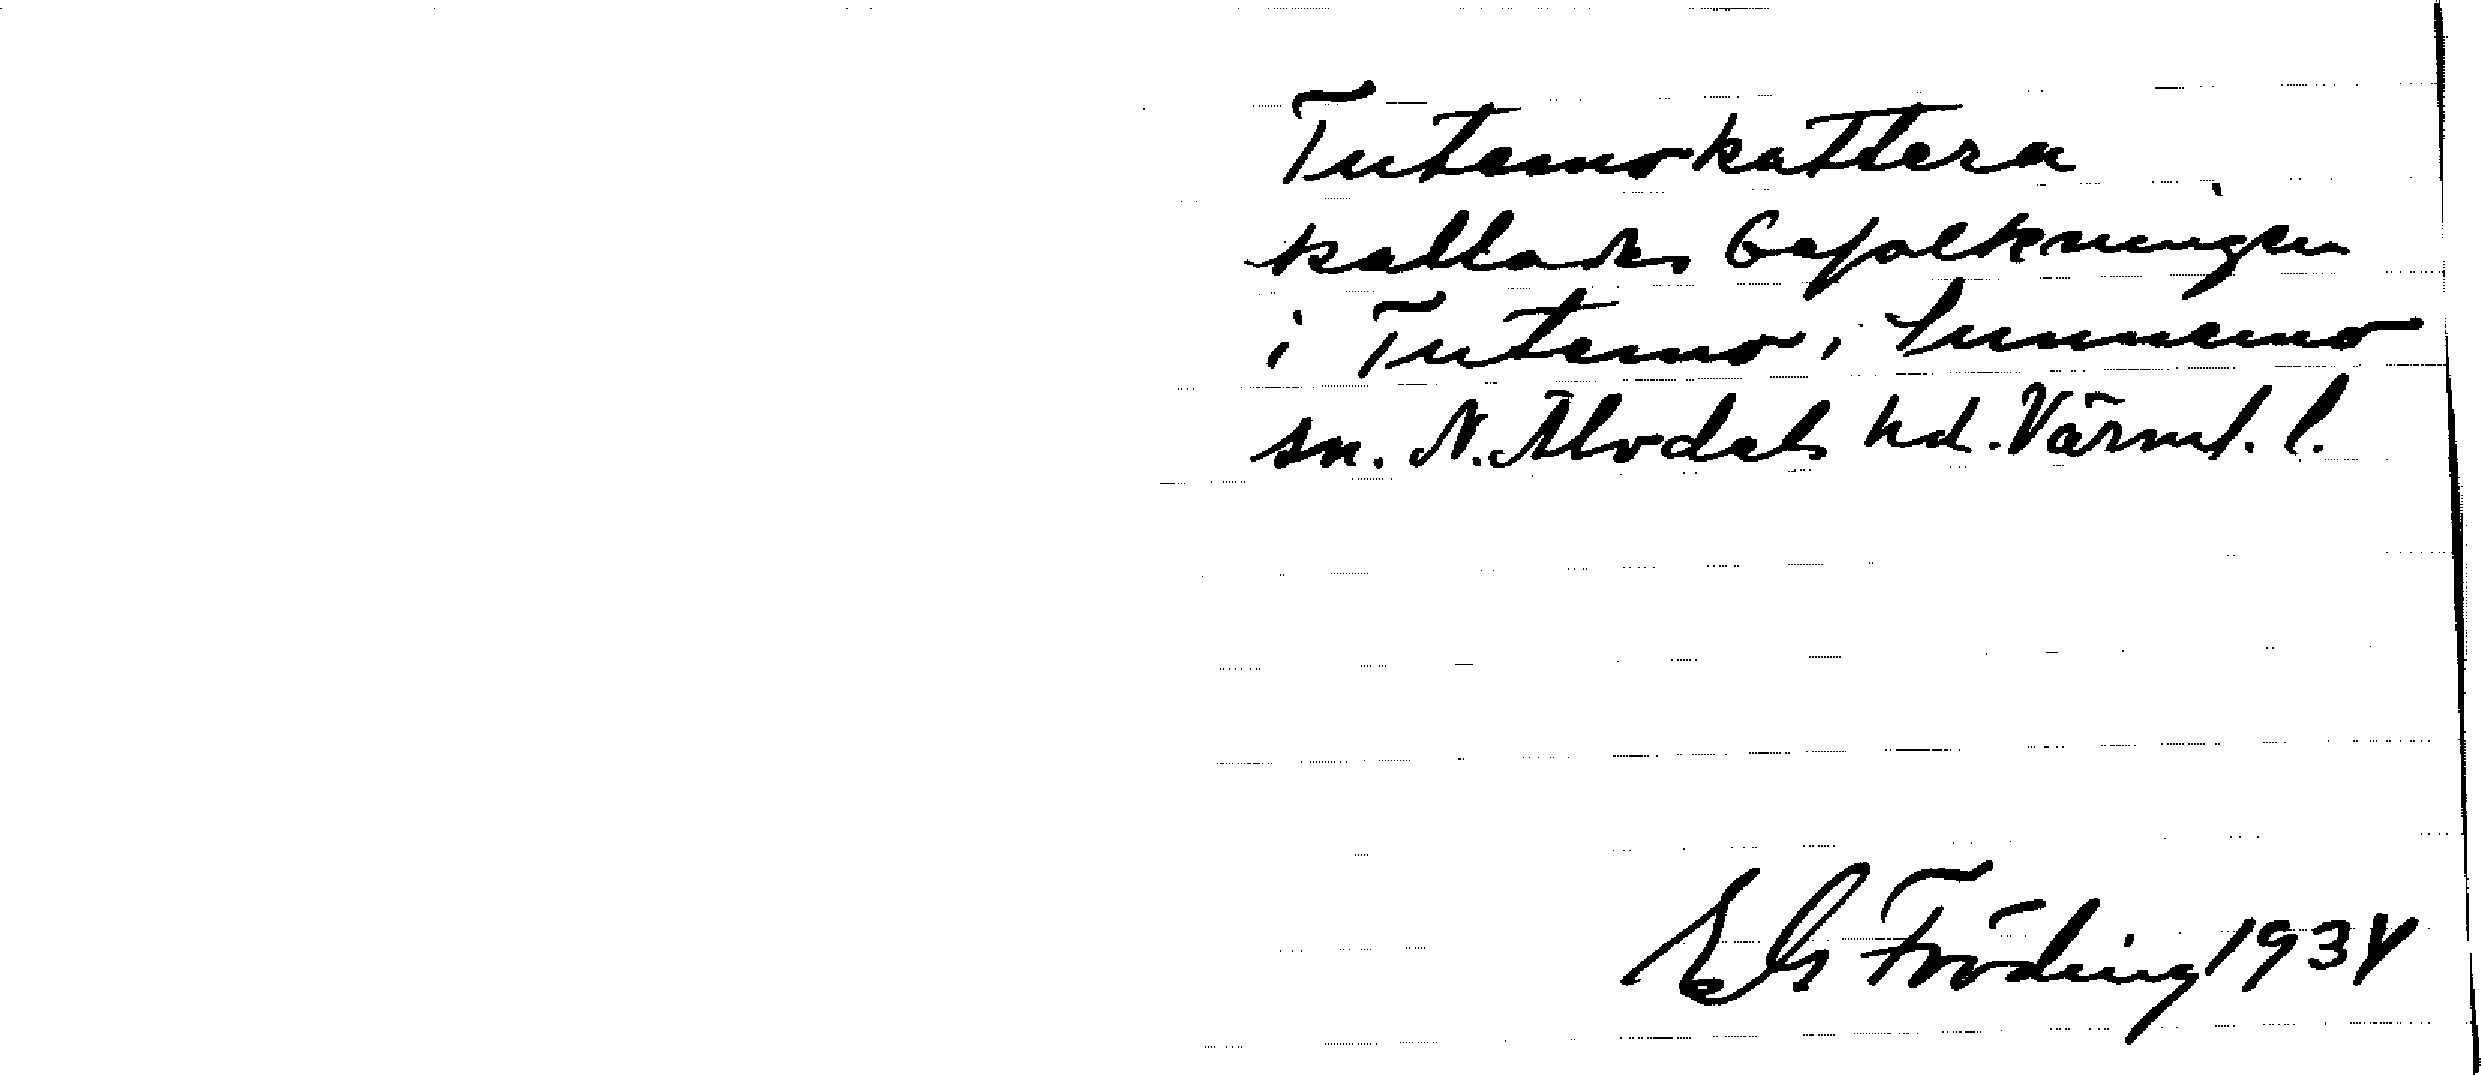 Tutemokattera
kallades befolkningen
i Tutemo, Sunnemo
sn. N. Älvdals hd. Värml. l.
Els Fröding 1934